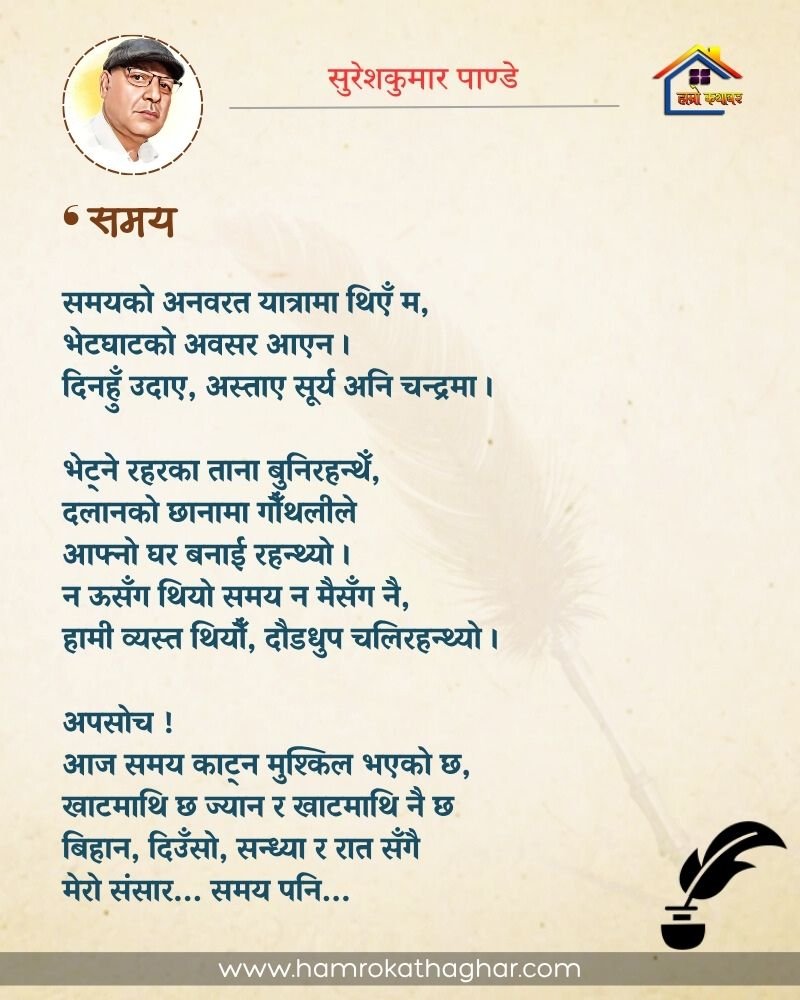 सुरेशकुमार पाण्डे
हाम्रो कथाघर
❛ समय
समयको अनवरत यात्रामा थिएँ म,
भेटघाटको अवसर आएन ।
दिनहुँ उदाए, अस्ताए सूर्य अनि चन्द्रमा ।
भेट्ने रहरका ताना बुनिरहन्थेँ,
दलानको छानामा गौँथलीले
आफ्नो घर बनाई रहन्थ्यो ।
न ऊसँग थियो समय न मैसँग नै,
हामी व्यस्त थियौँ, दौडधुप चलिरहन्थ्यो ।
अपसोच !
आज समय काट्न मुश्किल भएको छ,
खाटमाथि छ ज्यान र खाटमाथि नै छ
बिहान, दिउँसो, सन्ध्या र रात सँगै
मेरो संसार... समय पनि...
www.hamrokathaghar.com